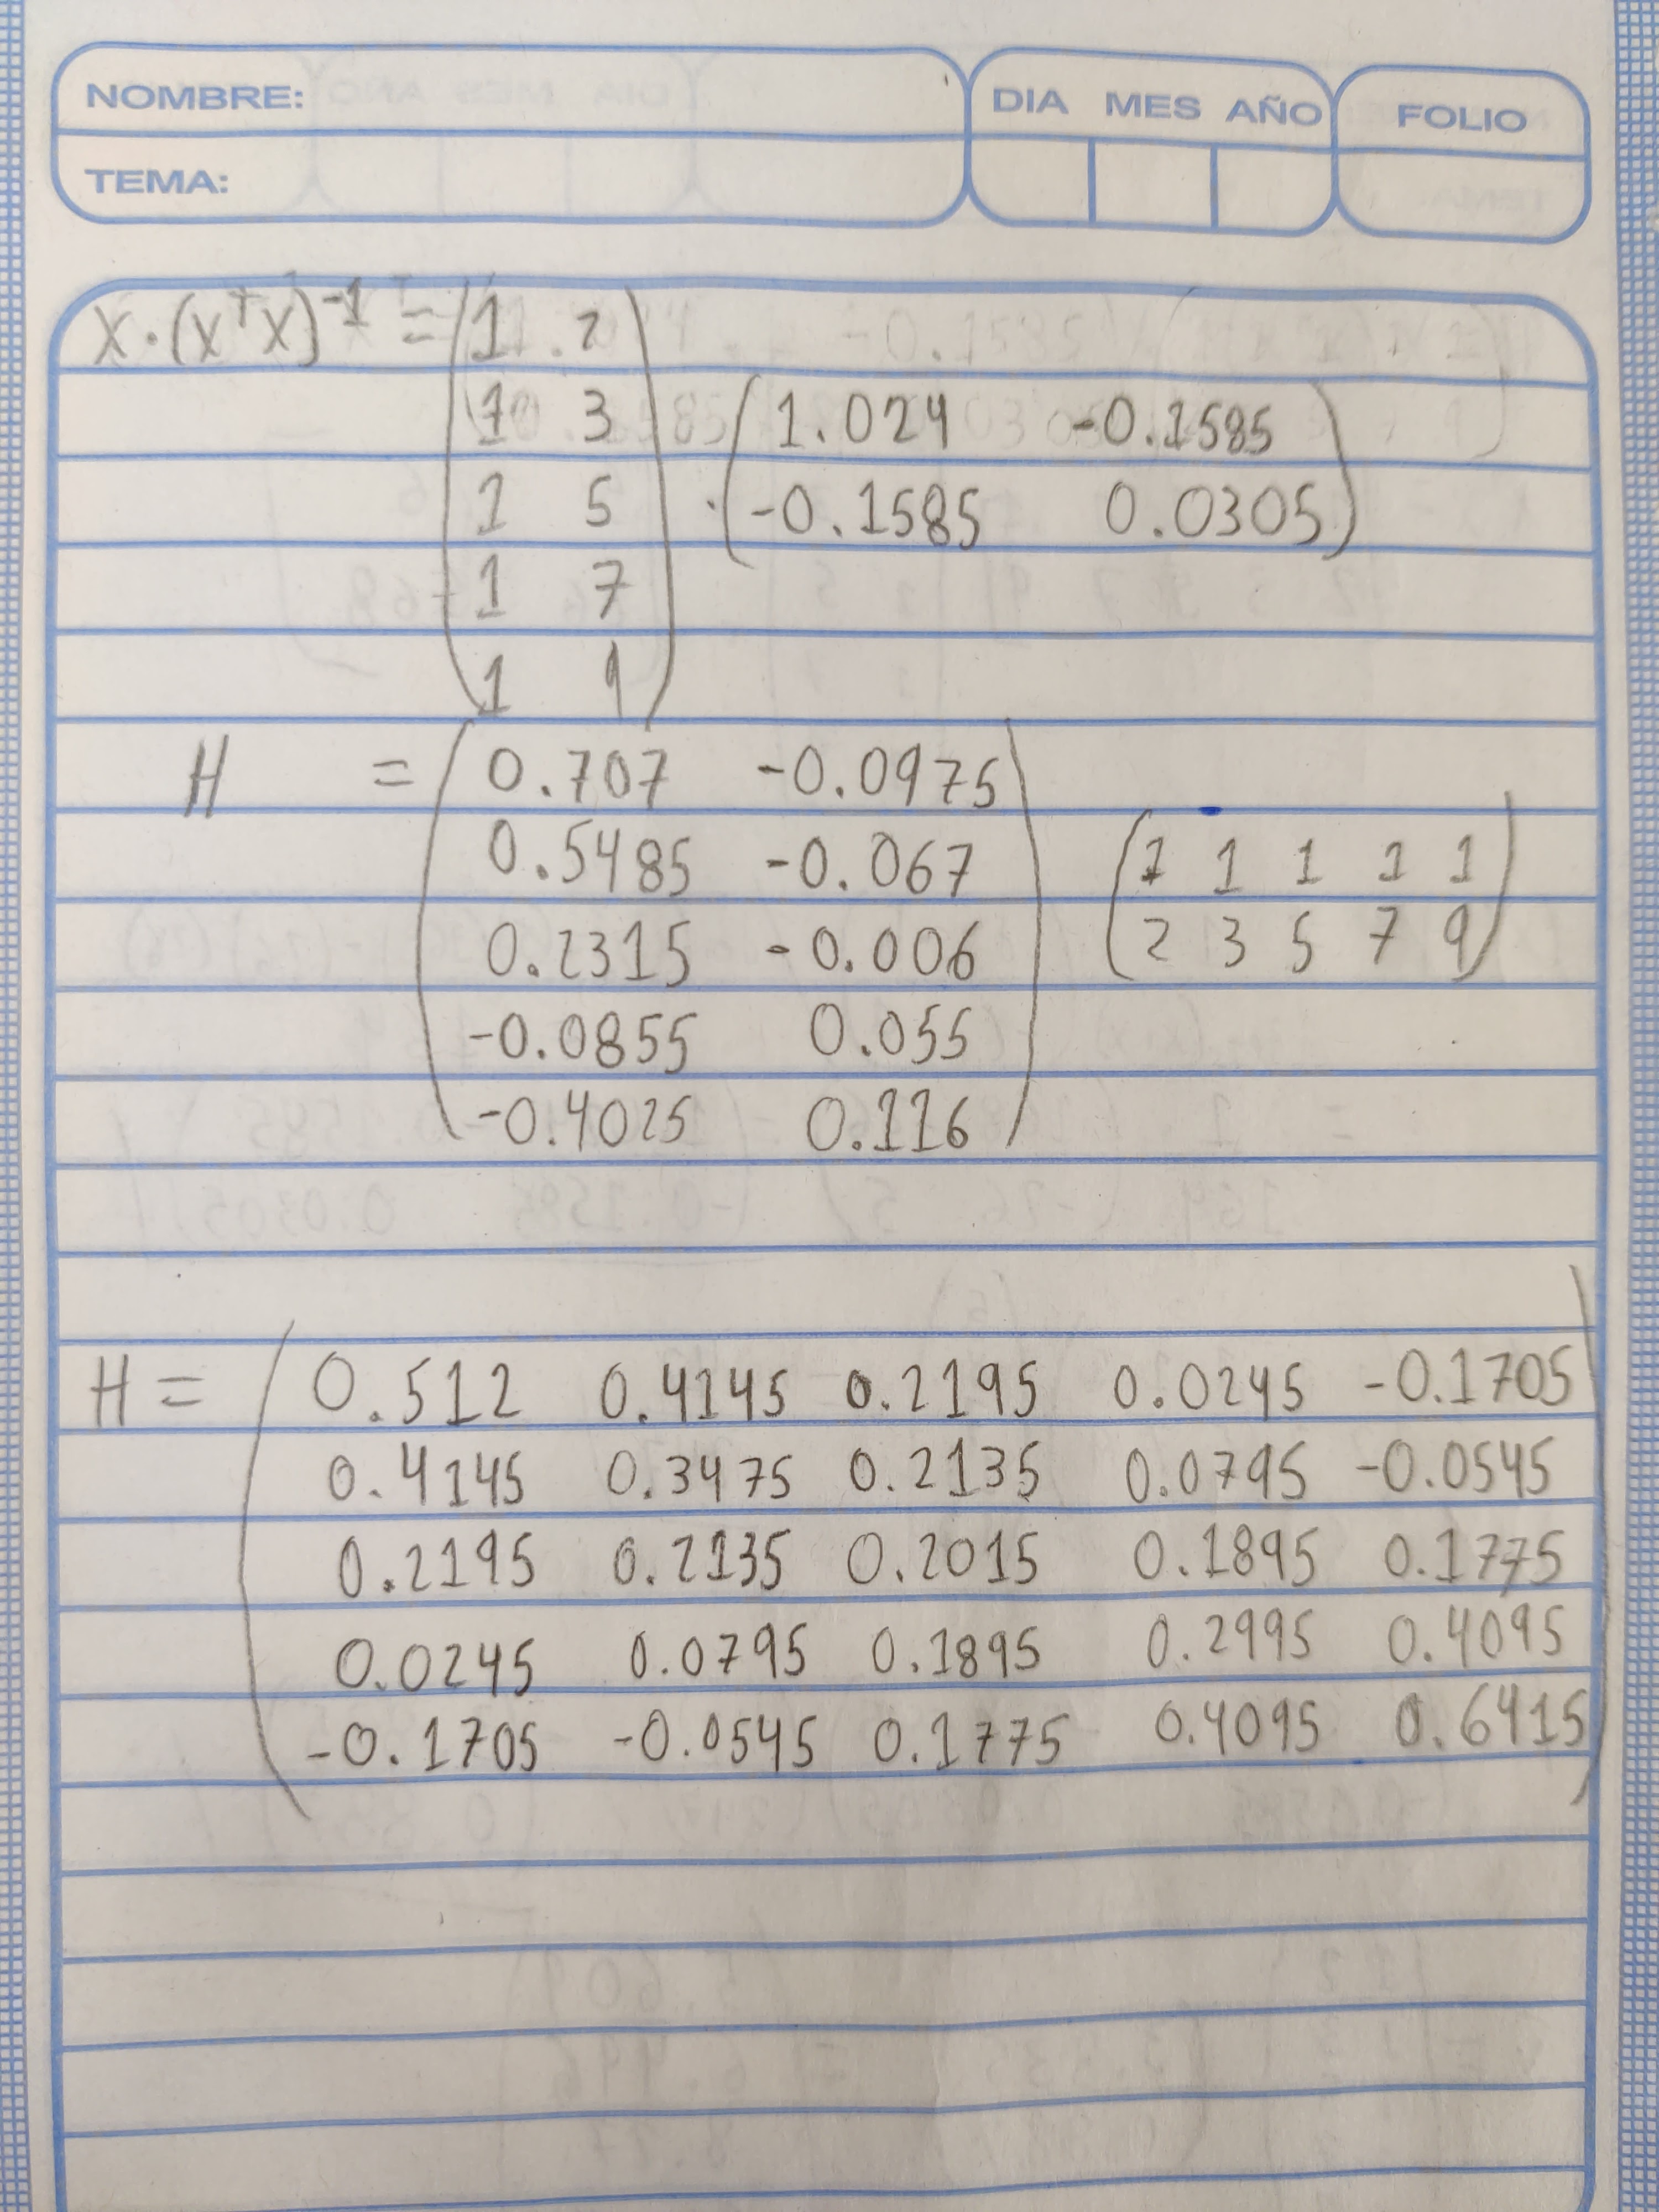 NOMBRE:
DIA MES AÑO
FOLIO
TEMA:
X·(X^T X)^-1 = (1 2
1 3
1 5
1 7
1 9) · (1.024 -0.1585
-0.1585 0.0305)
H = (0.707 -0.0975
0.5485 -0.067
0.2315 -0.006
-0.0855 0.055
-0.4025 0.116) (1 1 1 1 1
2 3 5 7 9)
H = (0.512 0.4145 0.2195 0.0245 -0.1705
0.4145 0.3475 0.2135 0.0795 -0.0545
0.2195 0.2135 0.2015 0.1895 0.1775
0.0245 0.0795 0.1895 0.2995 0.4095
-0.1705 -0.0545 0.1775 0.4095 0.6415)